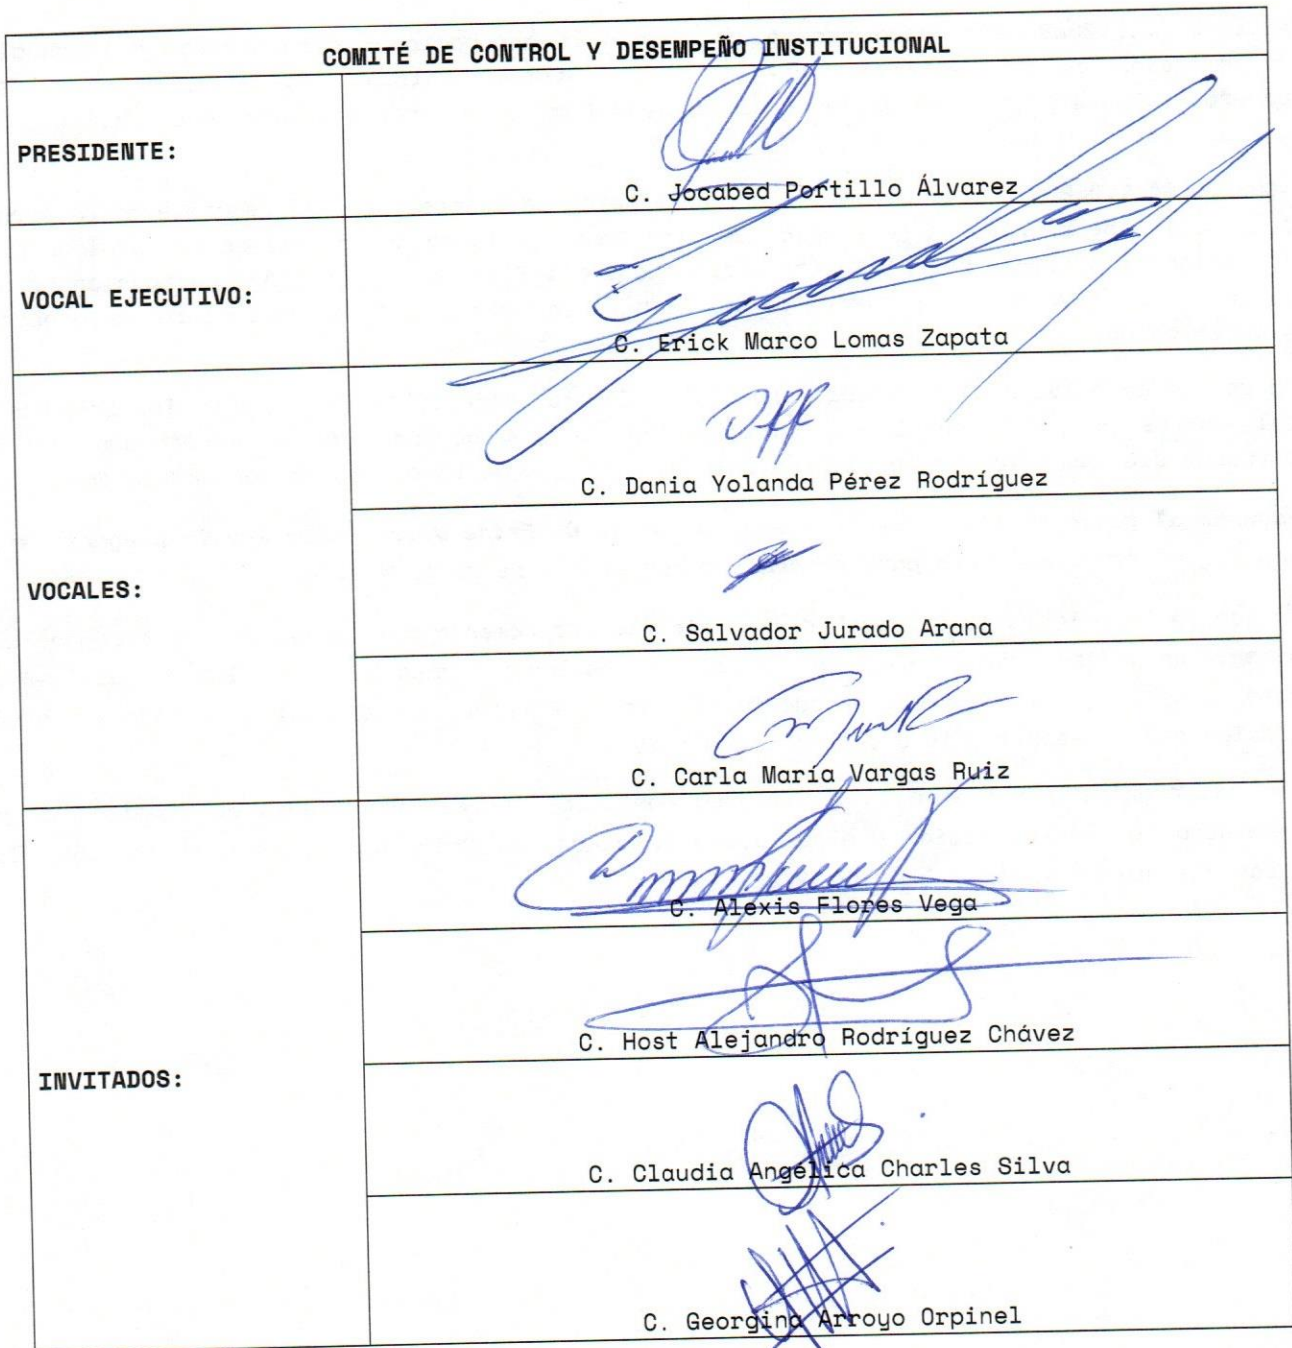 COMITÉ DE CONTROL Y DESEMPEÑO INSTITUCIONAL
PRESIDENTE:
C. Jocabed Portillo Álvarez
VOCAL EJECUTIVO:
C. Erick Marco Lomas Zapata
VOCALES:
C. Dania Yolanda Pérez Rodríguez
C. Salvador Jurado Arana
C. Carla María Vargas Ruiz
INVITADOS:
C. Alexis Flores Vega
C. Host Alejandro Rodríguez Chávez
C. Claudia Angélica Charles Silva
C. Georgina Arroyo Orpinel